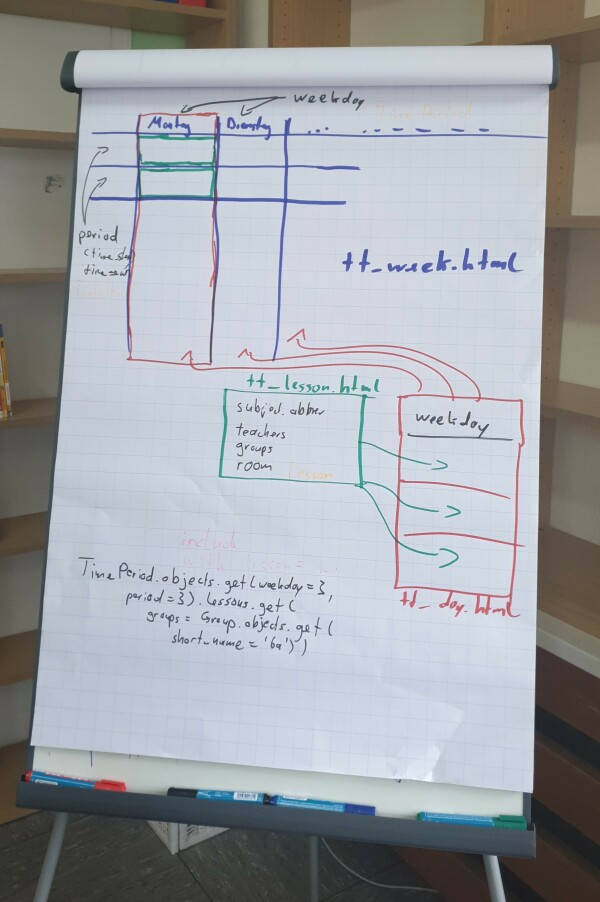 weekday
Montag Dienstag ... -- - - - -
period
tt_week.html
tt_lesson.html
subject.abbrev
teachers
groups
room
Lesson
weekday
tt_day.html
include
TimePeriod.objects.get(weekday=3,
period=3).lessons.get(
groups=Group.objects.get(
short_name='6a'))